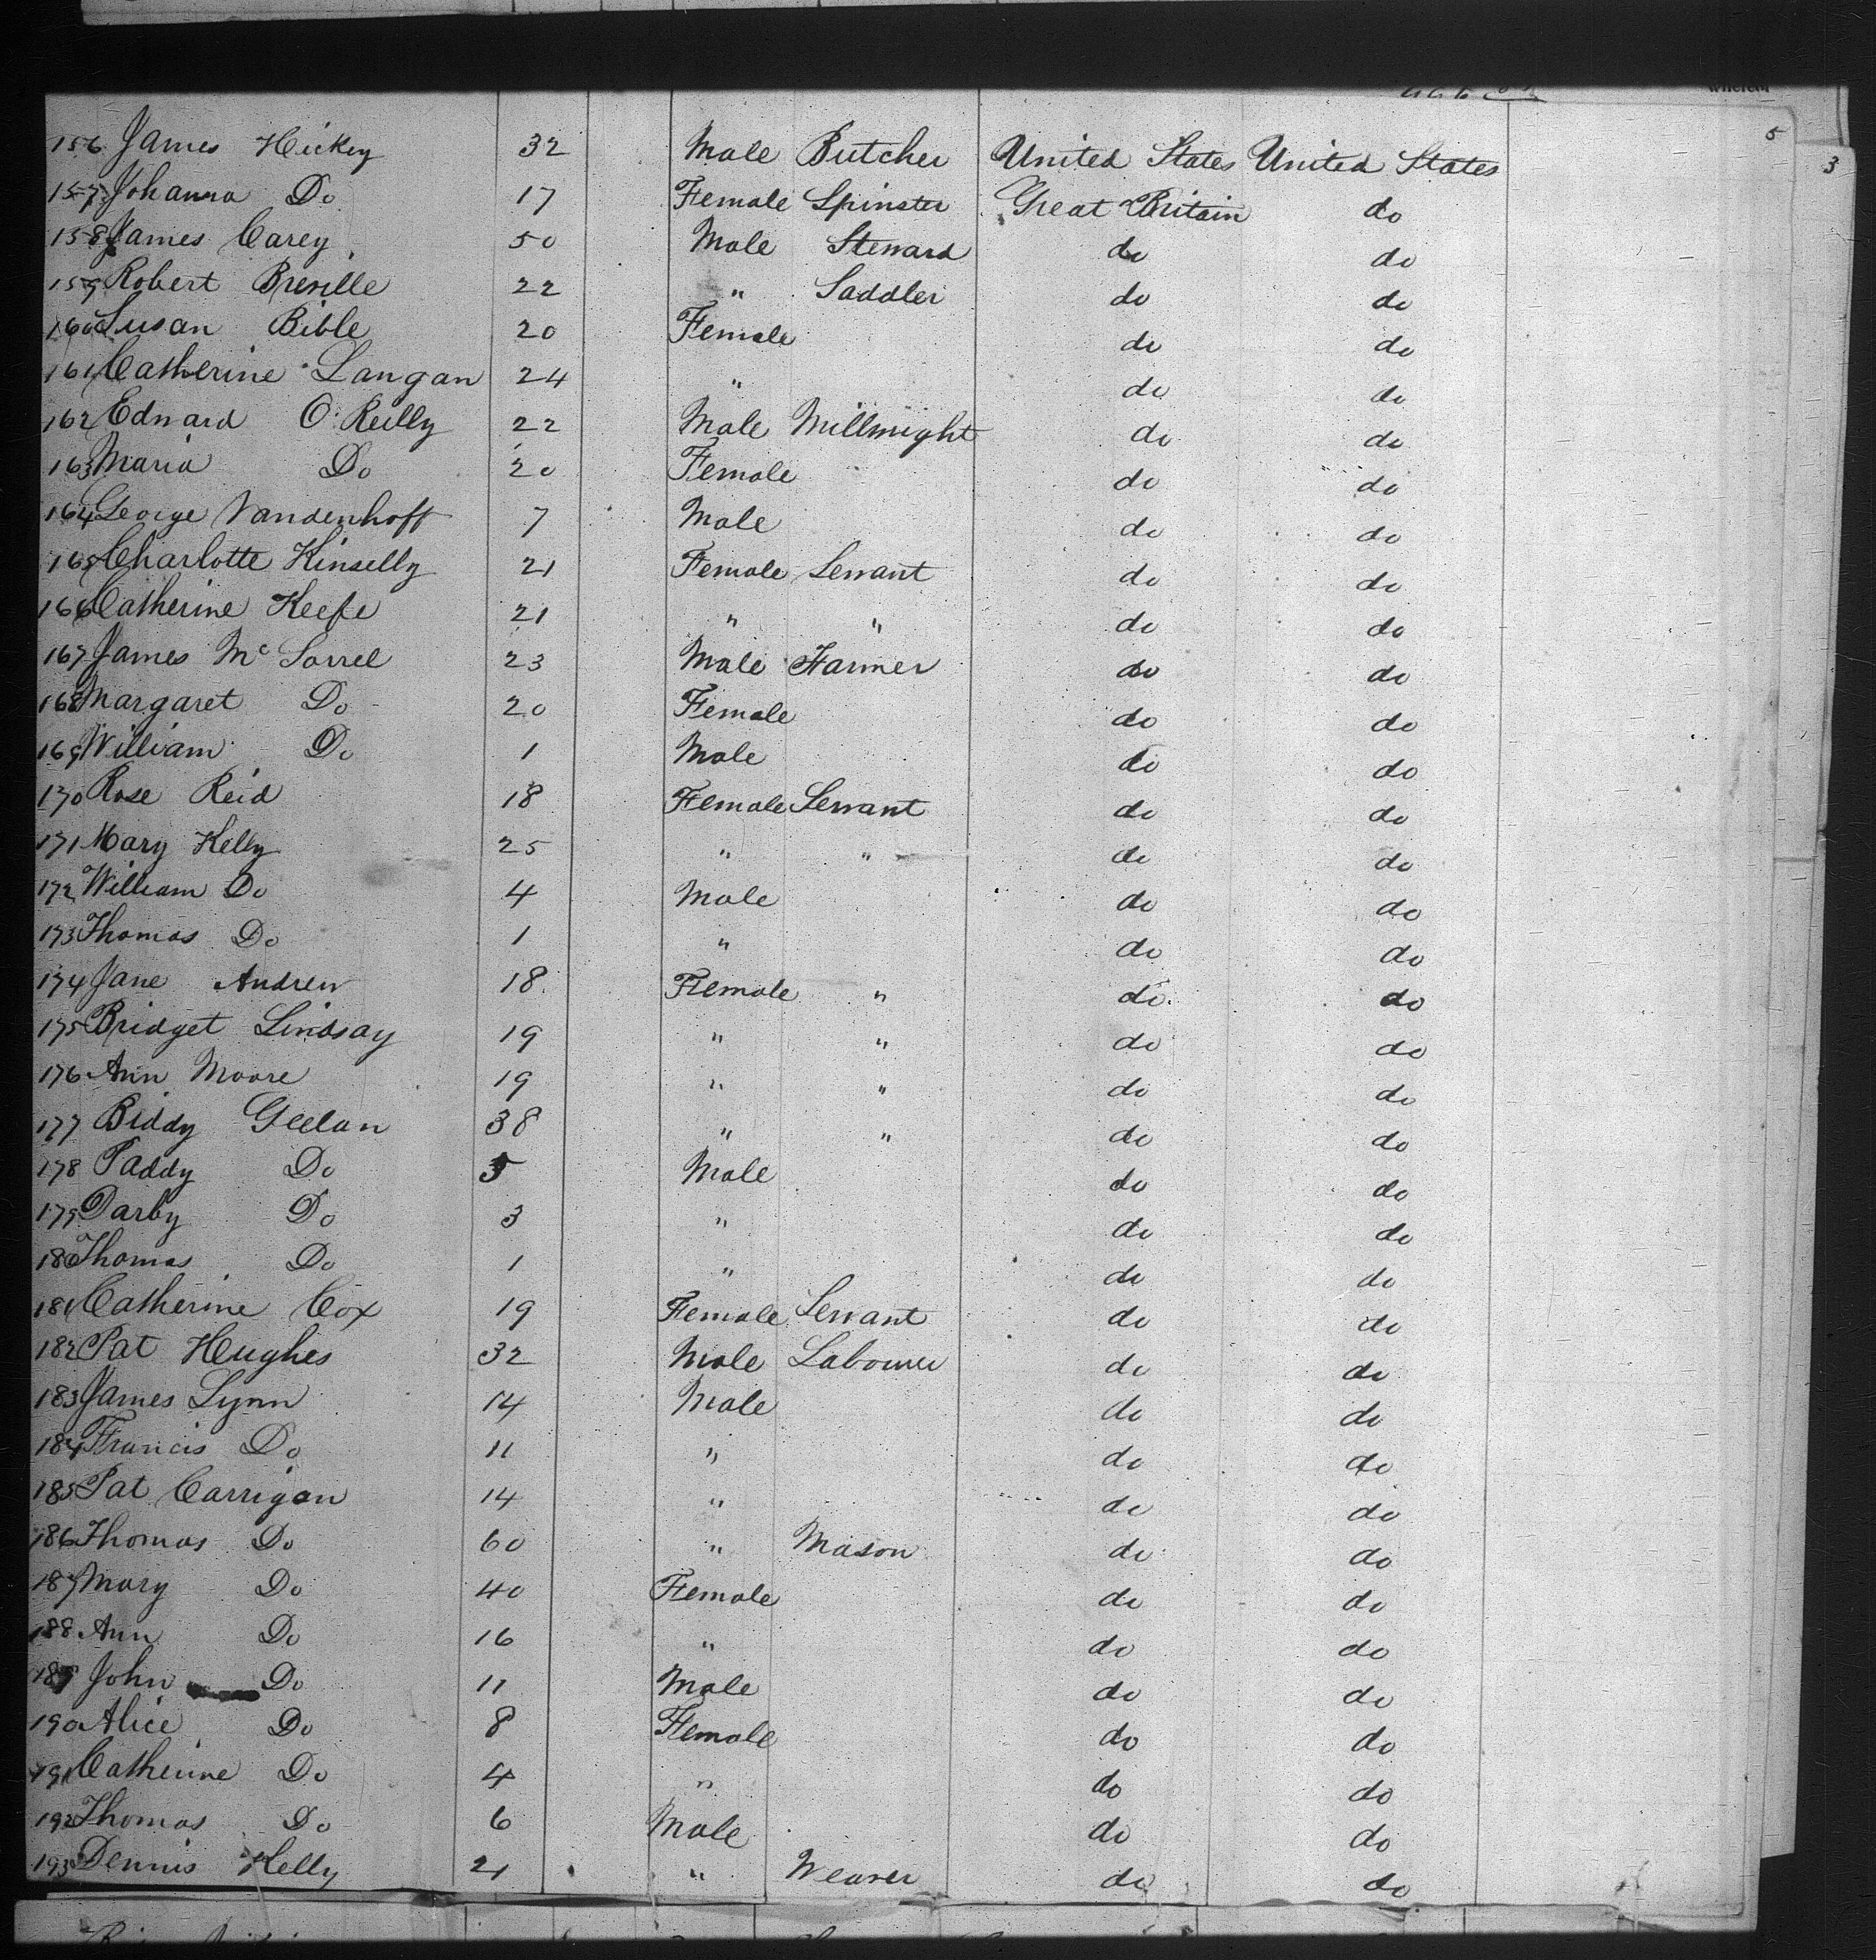 5
3
156 James Hickey 32 Male Butcher United States United States
157 Johanna Do 17 Female Spinster Great Britain do
158 James Carey 50 Male Steward do do
159 Robert Breville 22 " Saddler do do
160 Susan Bible 20 Female do do
161 Catherine Langan 24 " do do
162 Edward O'Reilly 22 Male Millwright do do
163 Maria Do 20 Female do do
164 George Vandenhoff 7 Male do do
165 Charlotte Kinselly 21 Female Servant do do
166 Catherine Keefe 21 " " do do
167 James Mc Sorrel 23 Male Farmer do do
168 Margaret Do 20 Female do do
169 William Do 1 Male do do
170 Rose Reid 18 Female Servant do do
171 Mary Kelly 25 " " do do
172 William Do 4 Male do do
173 Thomas Do 1 " do do
174 Jane Andrew 18 Female " do do
175 Bridget Lindsay 19 " " do do
176 Ann Moore 19 " " do do
177 Biddy Geelan 38 " " do do
178 Paddy Do 5 Male do do
179 Darby Do 3 " do do
180 Thomas Do 1 " do do
181 Catherine Cox 19 Female Servant do do
182 Pat Hughes 32 Male Labourer do do
183 James Lynn 14 Male do do
184 Francis Do 11 " do do
185 Pat Carrigan 14 " do do
186 Thomas Do 60 " Mason do do
187 Mary Do 40 Female do do
188 Ann Do 16 " do do
189 John Do 11 Male do do
190 Alice Do 8 Female do do
191 Catherine Do 4 " do do
192 Thomas Do 6 Male do do
193 Dennis Kelly 21 " Weaver do do